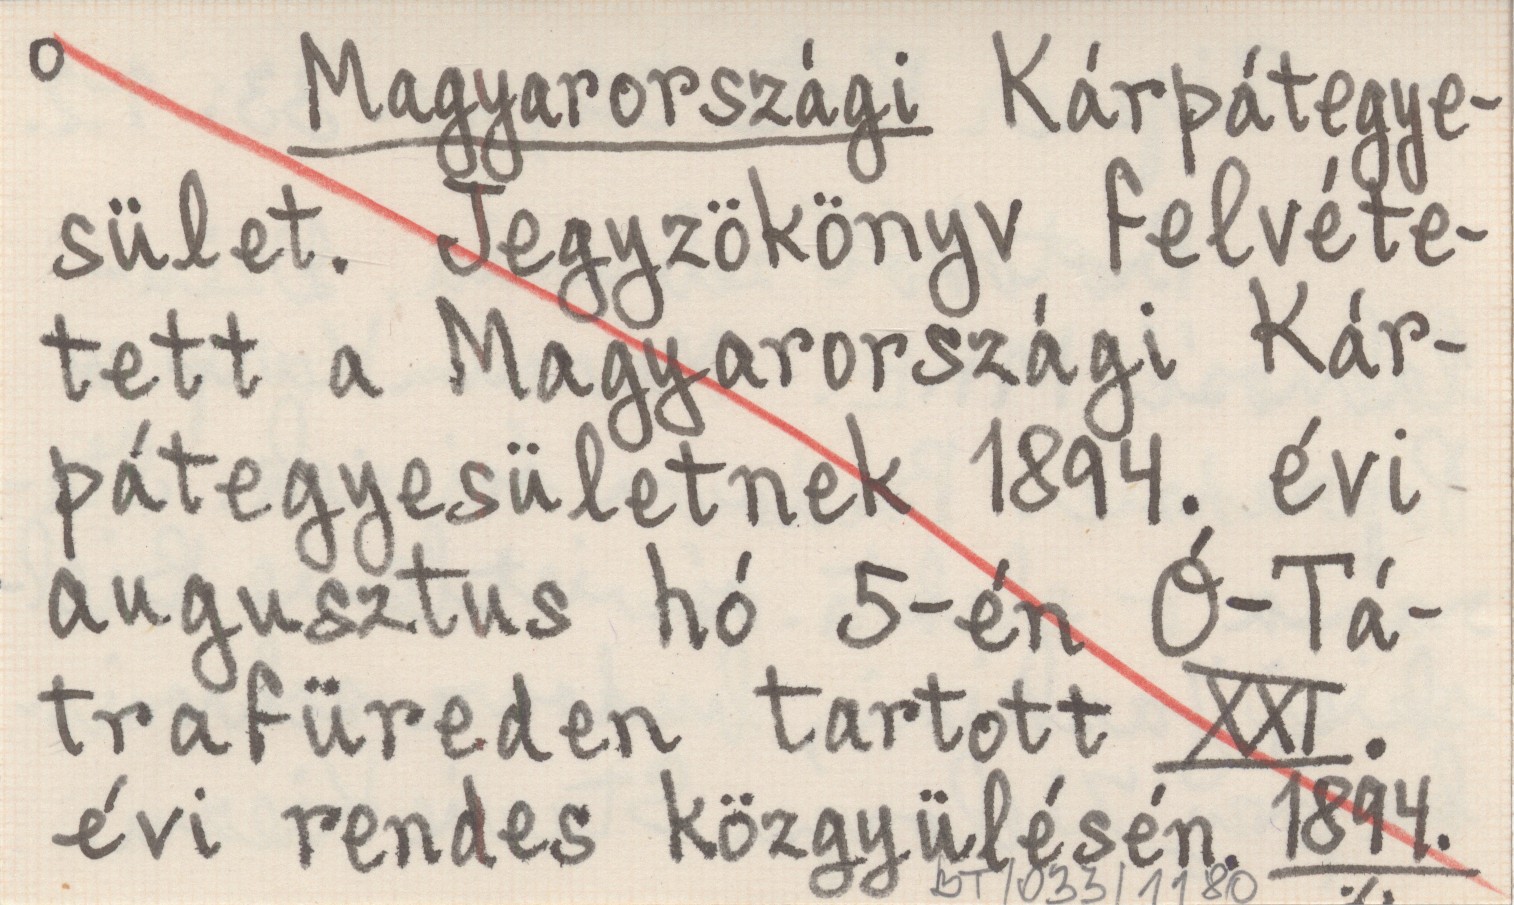 o Magyarországi Kárpátegye-
sület. Jegyzökönyv felvéte-
tett a Magyarországi Kár-
pátegyesületnek 1894. évi
augusztus hó 5-én Ó-Tá-
trafüreden tartott XXI.
évi rendes közgyülésén. 1894.
BT/033/1180 ./.